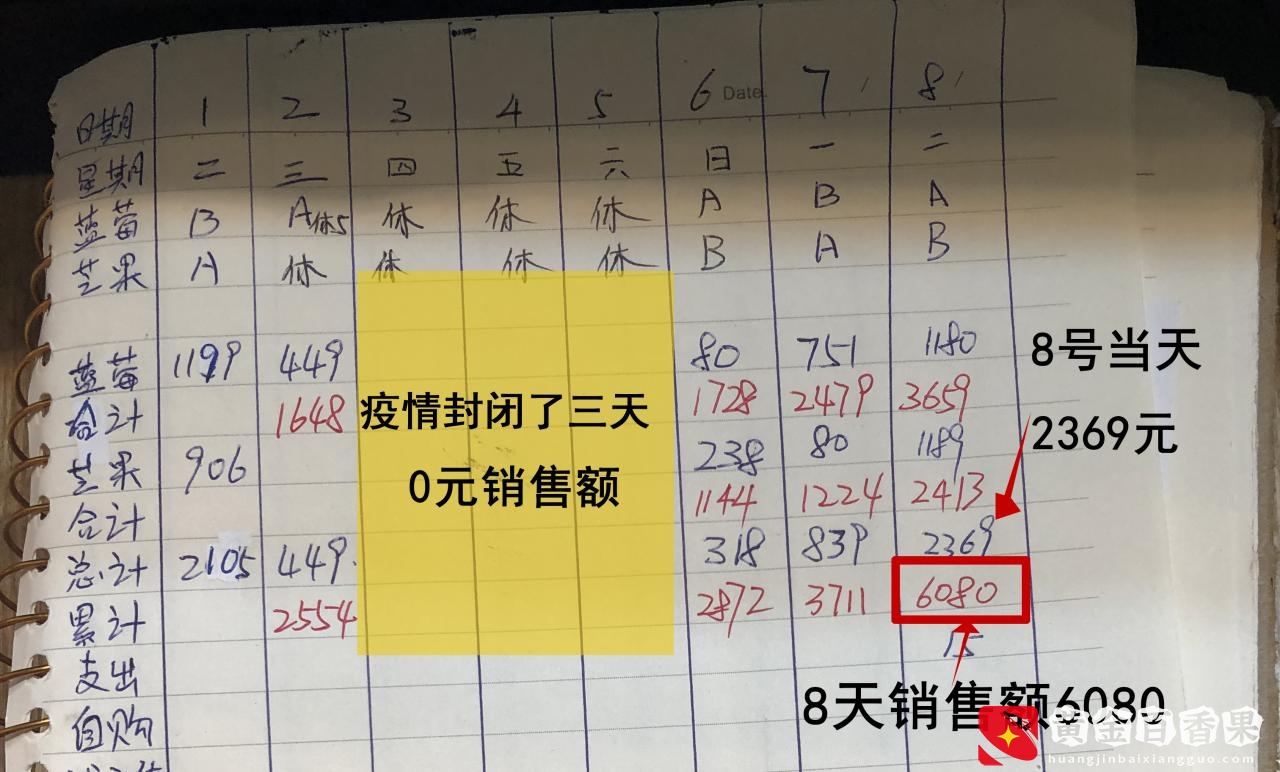 日期 1 2 3 4 5 6 Date. 7 8
星期 二 三 四 五 六 日 一 二
蓝莓 B A休5 休 休 休 A B A
芒果 A 休 休 休 休 B A B
蓝莓 1199 449 80 751 1180
合计 1648 1728 2479 3659
芒果 906 238 80 1189
合计 1144 1224 2413
总计 2105 449. 318 839 2369
累计 2554 2872 3711 6080
支出 15
自购
疫情封闭了三天
0元销售额
8号当天
2369元
8天销售额6080
黄金百香果
huangjinbaixiangguo.com